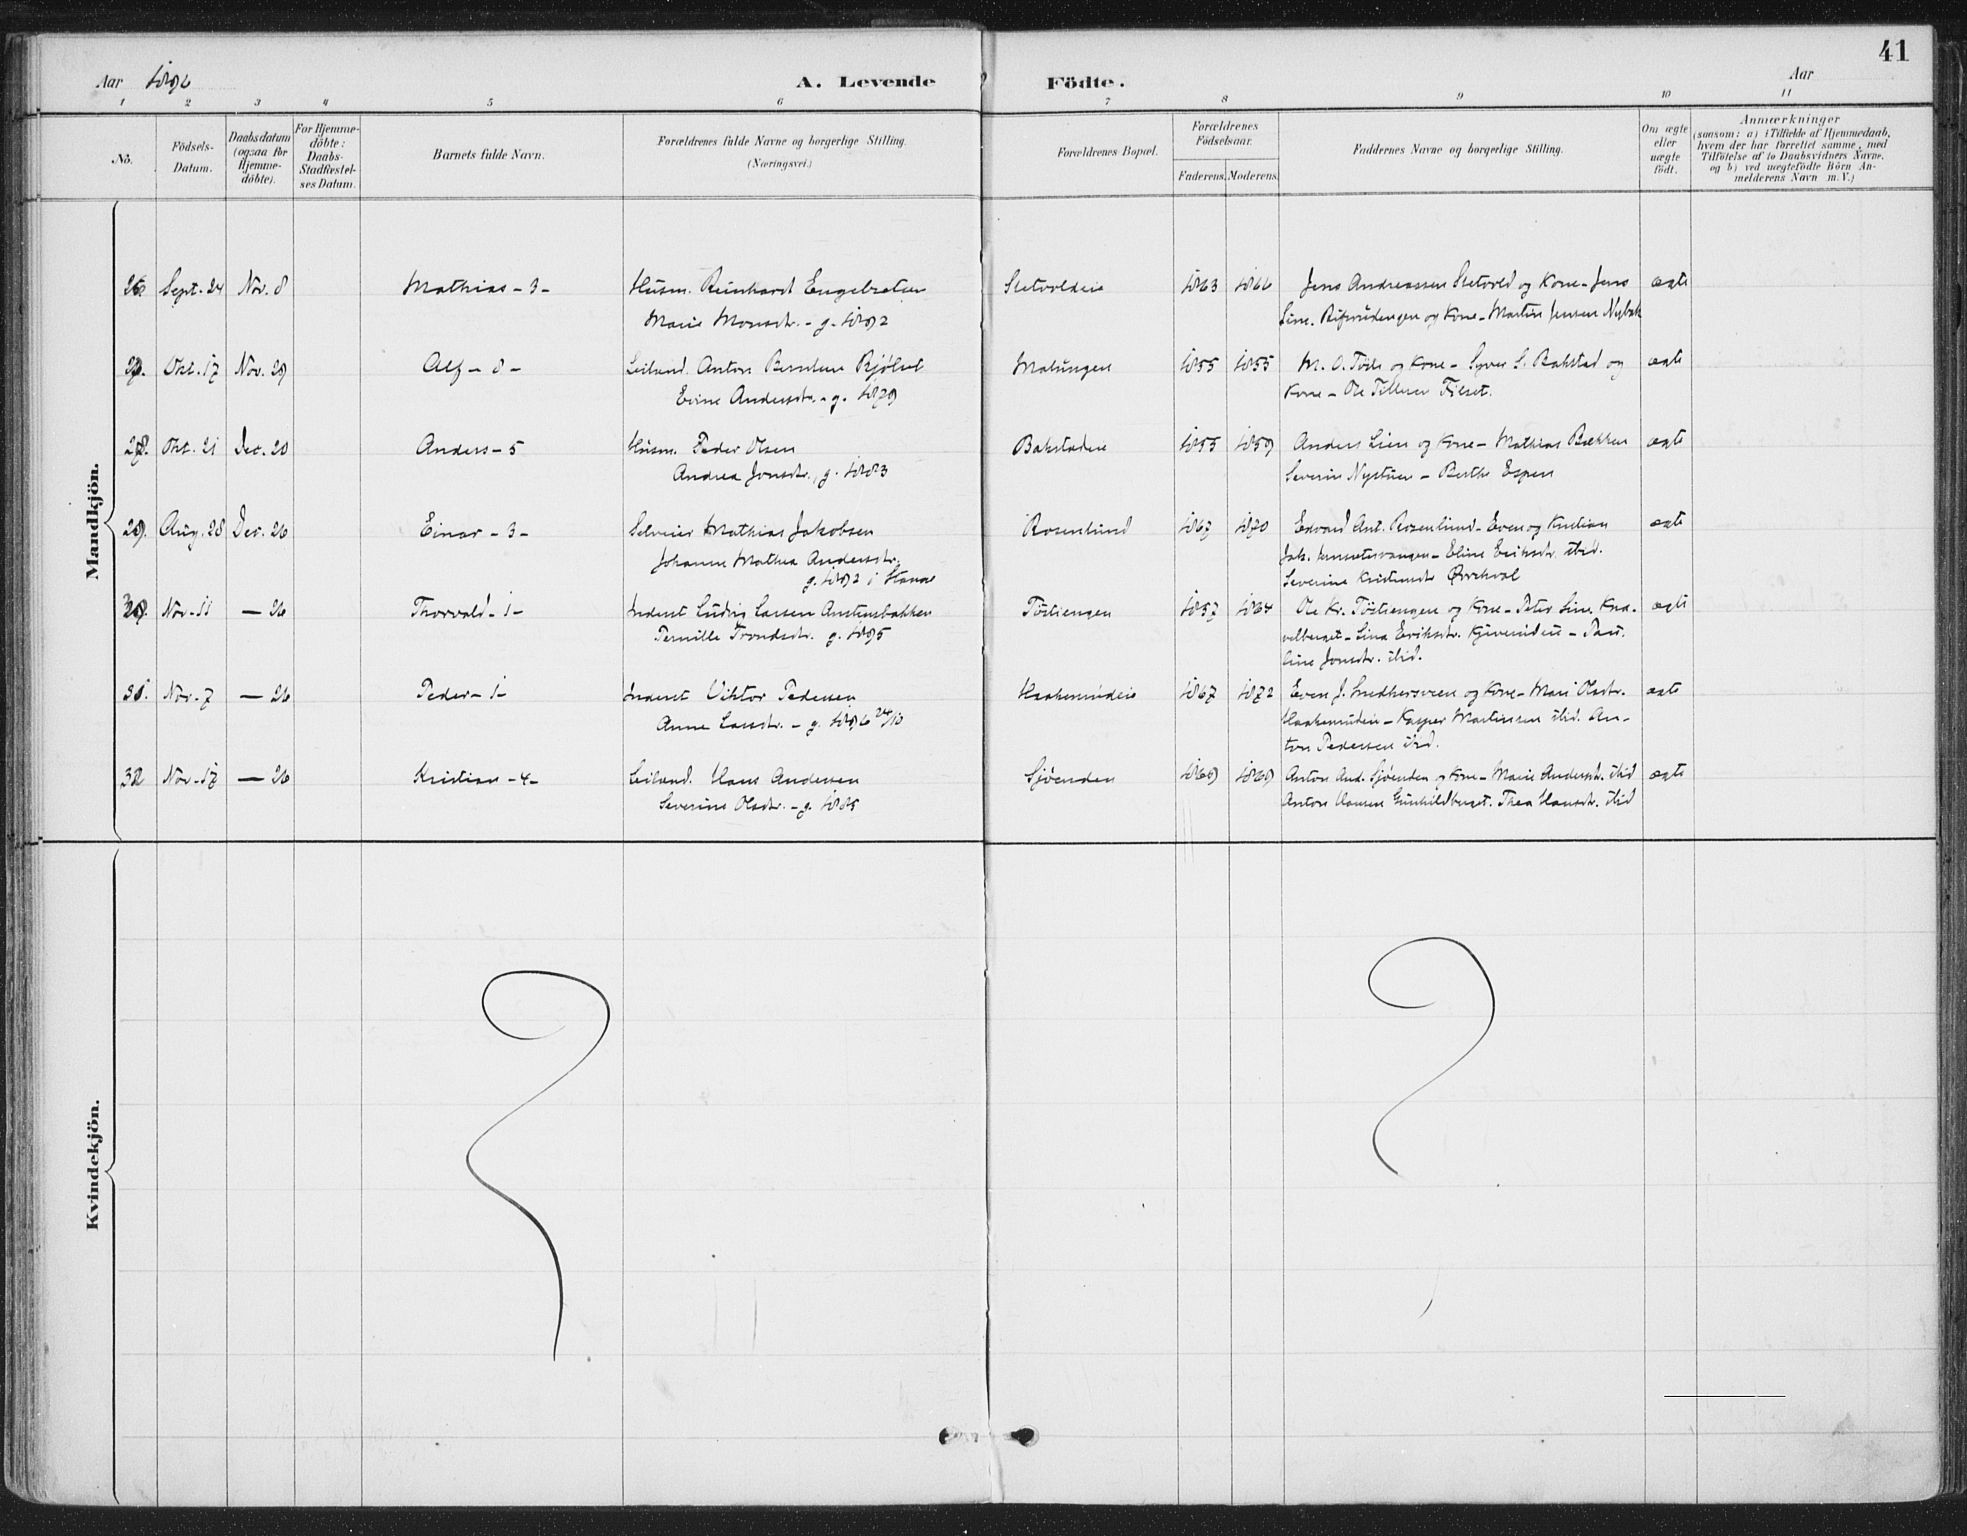 Aar 1896 A. Levende Födte. Aar 41
1 2 3 4 5 6 7 8 9 10 11
No.
Födsels-Datum.
Daabsdatum (ogsaa for Hjemme-döbte).
For Hjemme-döbte: Daabs-Stadfæstel-ses Datum.
Barnets fulde Navn.
Forældrenes fulde Navne og borgerlige Stilling. (Næringsvei.)
Forældrenes Bopæl.
Forældrenes Födselsaar.
Faderens. Moderens.
Faddernes Navne og borgerlige Stilling.
Om ægte eller uægte födt.
Anmærkninger
(saasom: a) i Tilfælde af Hjemmedaab,
hvem der har forrettet samme, med
Tilföielse af to Daabsvidners Navne.
og b) ved uægtefödte Börn An-
melderens Navn m. V.)
Mandkjön.
26 Sept. 24 Nov. 8 Mathias - 3 - Husm. Reinhard Engebretsen Sletvoldeie 1863 1866 Jens Andreassen Sletvold og Kone - Jens ægte
Marie Monsdr. - g. 1892 Sim. og Kone - Martin Jensen Nybak
27. Okt. 17 Nov. 29 Alf - 8 - Leilend. Anton Berntsen Bjölset Malungen 1855 1855 M. O. Töde og Kone - Syver S. Bakstad og ægte
Eline Andersdr. - g. 1879 Kone - Ole Tillerer Filset.
28. Okt. 21 Dec. 20 Anders - 5 Husm. Peder Olsen Bakstadeie 1855 1859 Anders Lien og Kone - Mathias Bækken ægte
Andrea Jonsdr., g. 1883 Severin Nystuen - Berthe Espen
29. Aug. 28 Dec. 26 Einar - 3 - Selveier Mathias Jakobsen Rosenlund 1867 1870 Edvard Ant. Rosenlund - Even og Kristian ægte
Johanne Mathea Andersdr. Jak. - Eline Eriksdr. ibid.
g. 1892 i Stange Severine Kristiansdr
30. Nov. 11 - 26 Thorvald - 1 - Inderst Ludvig Larsen Austensbakken Töstiengen 1857 1864 Ole Kr. Töstiengen og Kone - Peter Sim. Kna- ægte
Pernille Trondsdr. g. 1895 velberget - Lina Eriksdr. - Pau-
line Jonsdr. ibid.
31. Nov. 7 - 26 Peder - 1 - Inderst Viktor Pedersen Haakenrudeie 1867 1872 Even J. Smedhersveen og Kone - Mari Olsdr. ægte
Anne Larsdr. - g. 1896 24/10 Haakenrudeie - Kasper Martinsen ibid. An-
ton Pedersen ibid.
32 Nov. 17 - 26 Kristian - 4 - Leilend. Hans Andersen Sjöenden 1869 1869 Anton And. Sjöenden og Kone - Marie Andersdr. ibid ægte
Severine Olsdr. - g. 1885 Anton Hansen Gunhildberget. Thea Hansdr. ibid
Kvindekjön.